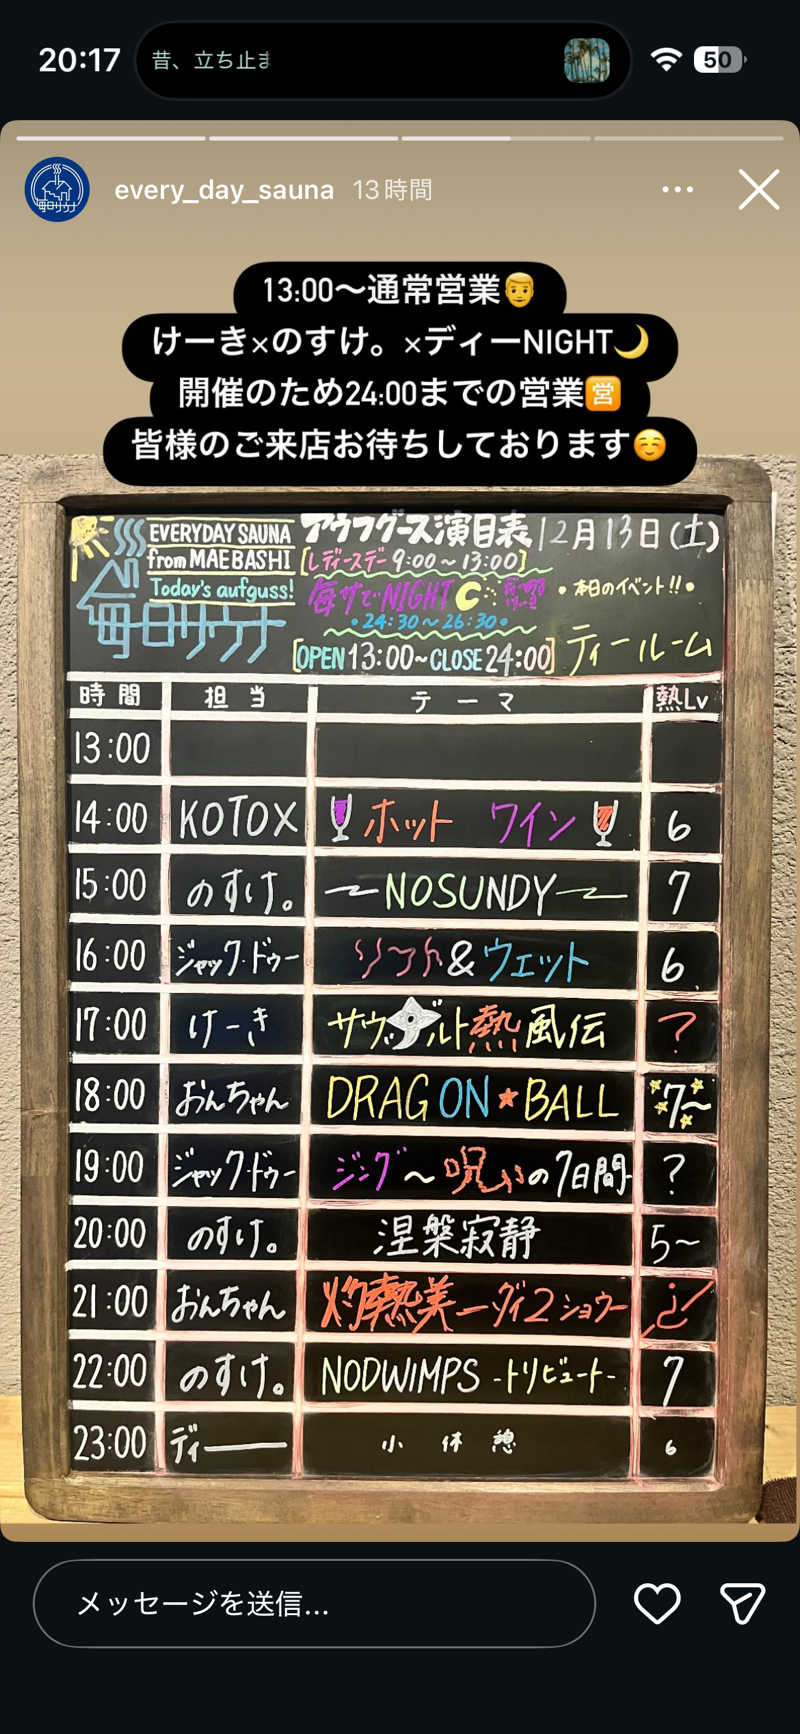 20:17
昔、立ち止ま
50
every_day_sauna 13時間
13:00〜通常営業
けーき×のすけ。×ディーNIGHT
開催のため24:00までの営業営
皆様のご来店お待ちしております
EVERYDAY SAUNA
from MAEBASHI
Today's aufguss!
毎日サウナ
アウフグース演目表 12月13日(土)
[レディースデー 9:00〜13:00]
毎サでNIGHT
•24:30〜26:30•
•本日のイベント!!•
[OPEN 13:00〜CLOSE 24:00] ティールーム
時間 担当 テーマ 熱Lv
13:00
14:00 KOTOX ホット ワイン 6
15:00 のすけ。 〜NOSUNDY〜 7
16:00 ジャック・ドゥー ソフト&ウェット 6
17:00 けーき サウダルト熱風伝 ?
18:00 おんちゃん DRAGON★BALL 7〜
19:00 ジャック・ドゥー ジング〜呪いの7日間- ?
20:00 のすけ。 涅槃寂静 5〜
21:00 おんちゃん 灼熱美ーダイ2ショウー ¿
22:00 のすけ。 NODWIMPS -トリビュート- 7
23:00 ディー 小休憩 6
メッセージを送信...